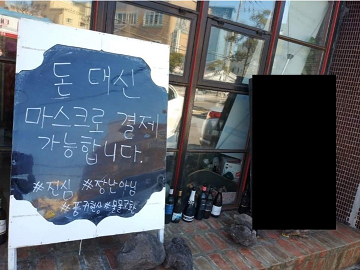 돈 대신
마스크로 결제
가능합니다.
#진심 #장난아님
#품귀현상 #물물교환